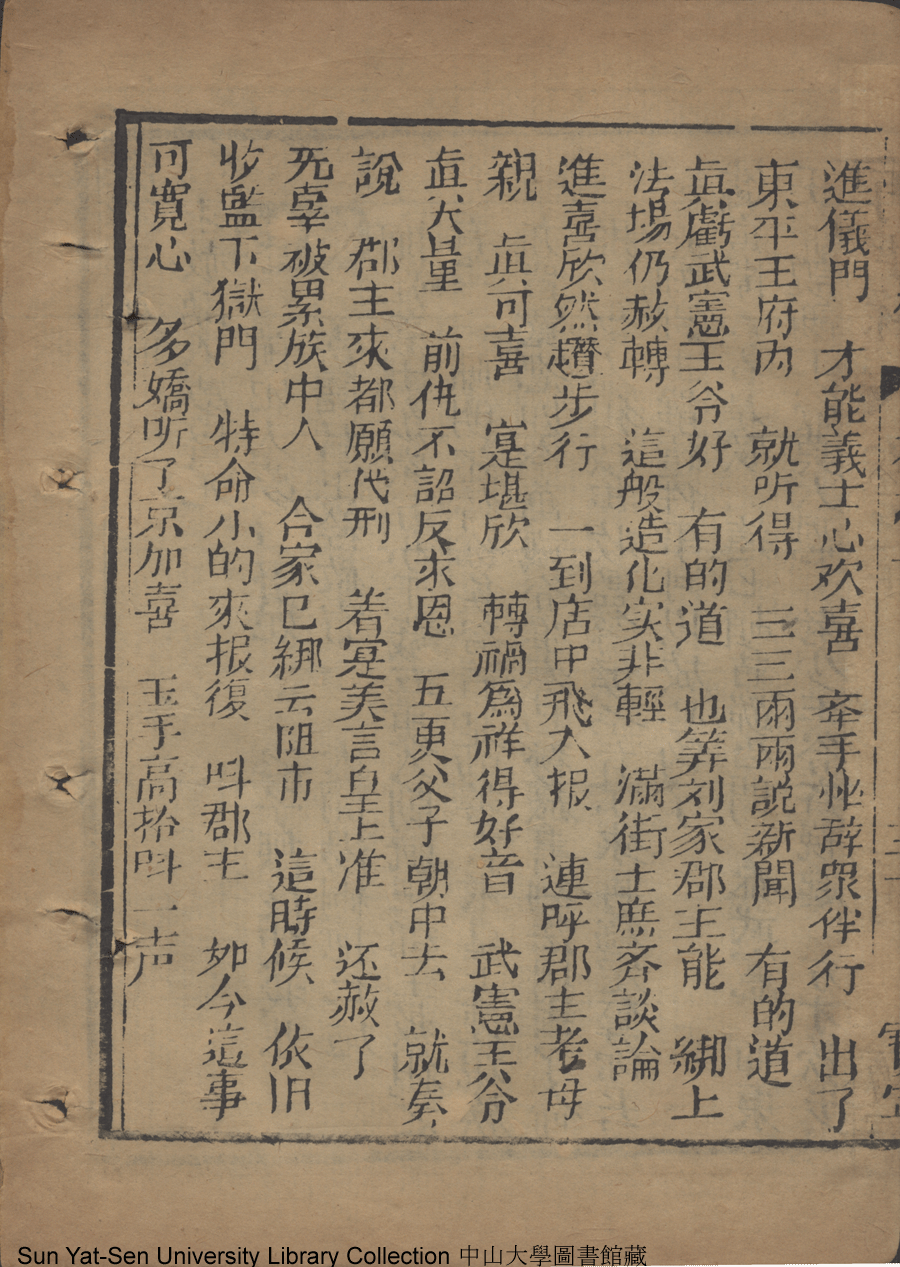 進儀門　才能義士心欢喜　牽手忙辞眾伴行　出了
東平王府內　就听得　三三兩兩說新聞　有的道
眞虧武憲王爷好　有的道　也筭刘家郡主能　綁上
法場仍赦轉　這般造化实非輕　滿街士庶齐談論
進喜欣然趲步行　一到店中飛人报　連呼郡主老母
親　眞可喜　寔堪欣　轉禍爲祥得好音　武憲王爷
眞大量　前仇不詔反求恩　五更父子朝中去　就奏
說　郡主來都願代刑　着寔美言皇上准　还赦了
无辜被累族中人　合家已綁云阳市　這時候　依旧
收監下獄門　特命小的來报復　呌郡主　如今這事
可寬心　多嬌听了京加喜　玉手高抬呌一声
Sun Yat-Sen University Library Collection 中山大學圖書館藏